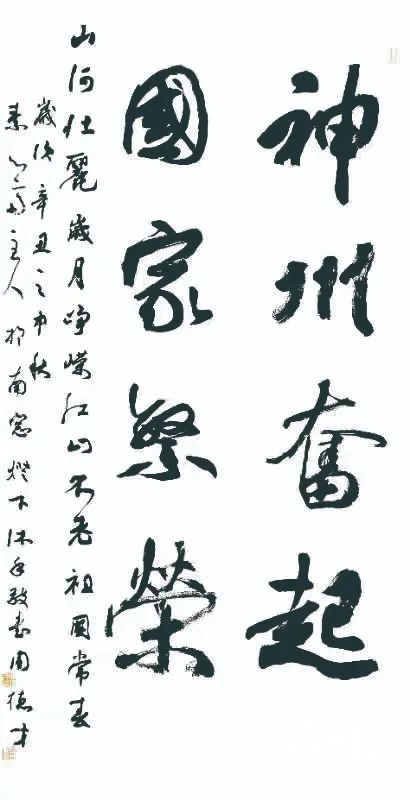 神州奮起
國家繁榮
山河壯麗歲月崢嶸江山不老祖國常春
歲次辛丑之中秋
素心齋主人於南窓燈下沐手敬書